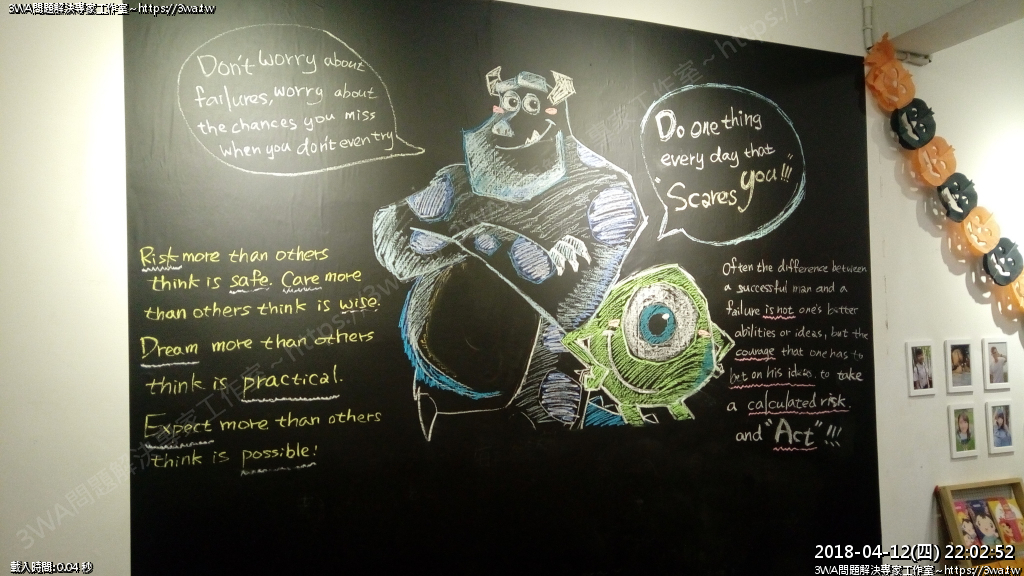 3WA問題解決專家工作室~https://3wa.tw
Don't worry about
failures, worry about
the chances you miss
when you don't even try
Do one thing
every day that
"Scares you!!!"
Risk more than others
think is safe. Care more
than others think is wise.
Dream more than others
think is practical.
Expect more than others
think is possible!
Often the difference between
a successful man and a
failure is not one's better
abilities or ideas, but the
courage that one has to
bet on his ideas. to take
a calculated risk.
and "Act" !!!
載入時間:0.04 秒
2018-04-12(四) 22:02:52
3WA問題解決專家工作室~https://3wa.tw